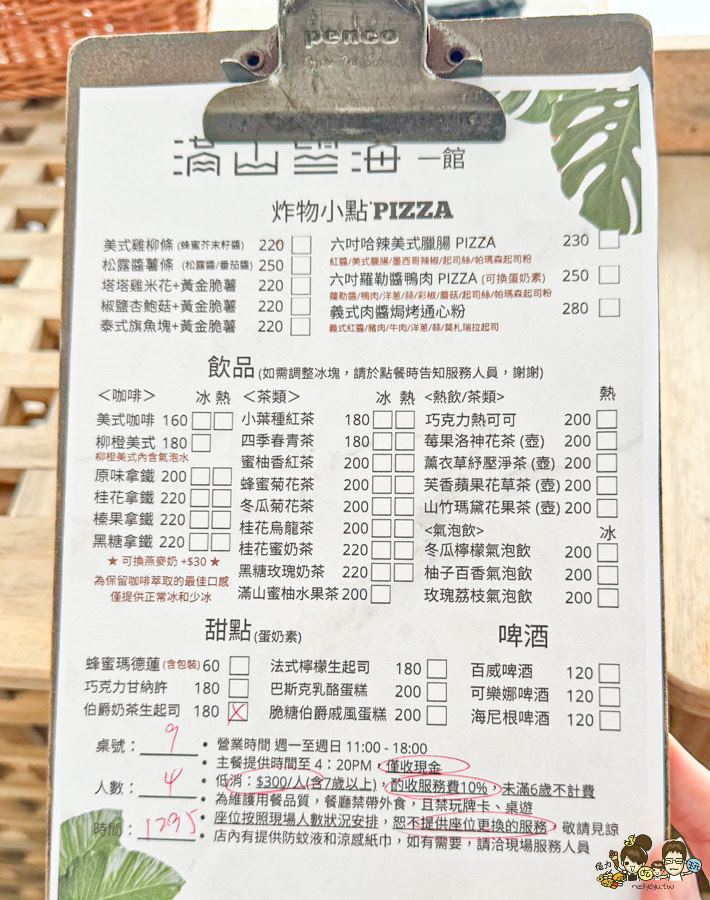 penco
滿山望海 一館
炸物小點·PIZZA
美式雞柳條 (蜂蜜芥末籽醬) 220
松露醬薯條 (松露醬/番茄醬) 250
塔塔雞米花+黃金脆薯 220
椒鹽杏鮑菇+黃金脆薯 220
泰式旗魚塊+黃金脆薯 220
六吋哈辣美式臘腸 PIZZA 230
紅醬/美式臘腸/墨西哥辣椒/起司絲/帕瑪森起司粉
六吋羅勒醬鴨肉 PIZZA (可換蛋奶素) 250
蘿勒醬/鴨肉/洋蔥/蒜/彩椒/蘑菇/起司絲/帕瑪森起司粉
義式肉醬焗烤通心粉 280
義式紅醬/豬肉/牛肉/洋蔥/蒜/莫札瑞拉起司
飲品 (如需調整冰塊，請於點餐時告知服務人員，謝謝)
＜咖啡＞ 冰 熱
美式咖啡 160
柳橙美式 180
柳橙美式內含氣泡水
原味拿鐵 200
桂花拿鐵 220
榛果拿鐵 220
黑糖拿鐵 220
★ 可換燕麥奶 +$30 ★
為保留咖啡萃取的最佳口感
僅提供正常冰和少冰
＜茶類＞ 冰 熱
小葉種紅茶 180
四季春青茶 180
蜜柚香紅茶 200
蜂蜜菊花茶 200
冬瓜菊花茶 200
桂花烏龍茶 200
桂花蜜奶茶 220
黑糖玫瑰奶茶 220
滿山蜜柚水果茶 200
<熱飲/茶類> 熱
巧克力熱可可 200
莓果洛神花茶 (壺) 200
薰衣草紓壓淨茶 (壺) 200
芙香蘋果花草茶 (壺) 200
山竹瑪黛花果茶 (壺) 200
<氣泡飲> 冰
冬瓜檸檬氣泡飲 200
柚子百香氣泡飲 200
玫瑰荔枝氣泡飲 200
甜點 (蛋奶素)
蜂蜜瑪德蓮 (含包裝) 60
巧克力甘納許 180
伯爵奶茶生起司 180
法式檸檬生起司 180
巴斯克乳酪蛋糕 200
脆糖伯爵戚風蛋糕 200
啤酒
百威啤酒 120
可樂娜啤酒 120
海尼根啤酒 120
桌號：9
人數：4
時間：1235
• 營業時間 週一至週日 11:00 - 18:00
• 主餐提供時間至 4：20PM，僅收現金
• 低消：$300/人(含7歲以上)，酌收服務費10%，未滿6歲不計費
• 為維護用餐品質，餐廳禁帶外食，且禁玩牌卡、桌遊
• 座位按照現場人數狀況安排，恕不提供座位更換的服務，敬請見諒
• 店內有提供防蚊液和涼感紙巾，如有需要，請洽現場服務人員